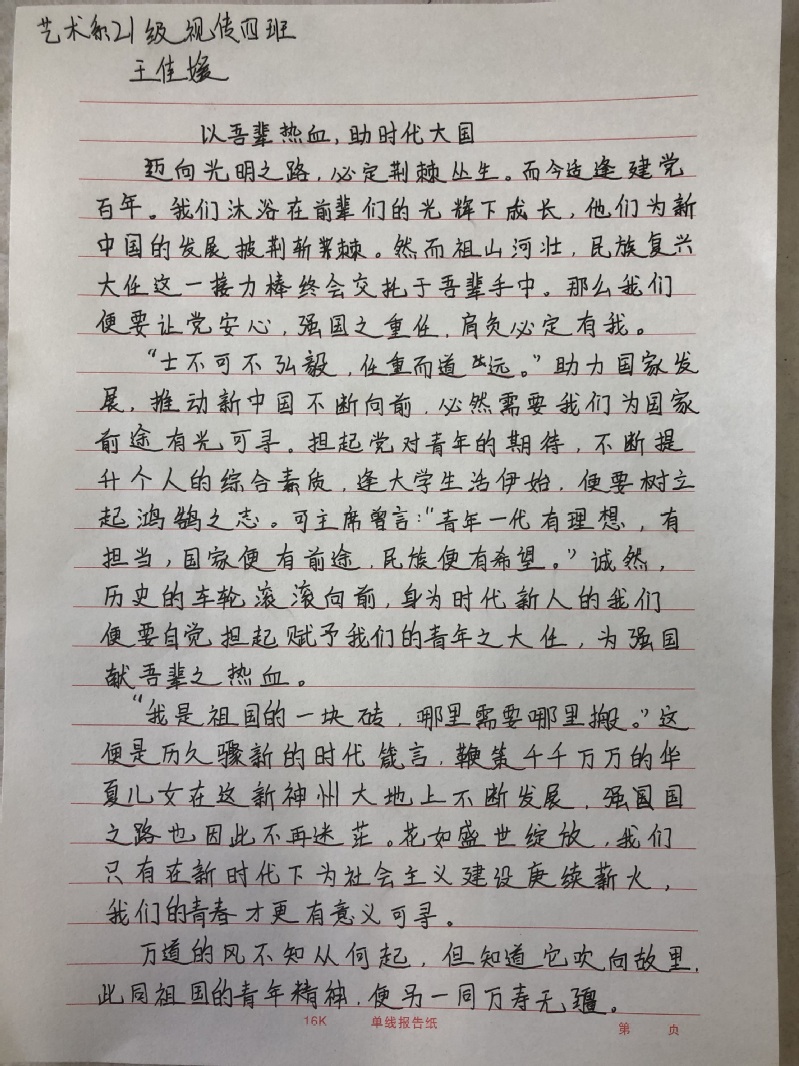 艺术系21级视传四班
王佳媛
以吾辈热血,助时代大国
迈向光明之路,必定荆棘丛生。而今适逢建党
百年。我们沐浴在前辈们的光辉下成长,他们为新
中国的发展披荆斩棘。然而祖山河壮,民族复兴
大任这一接力棒终会交托于吾辈手中。那么我们
便要让党安心,强国之重任,肩负必定有我。
“士不可不弘毅,任重而道远。”助力国家发
展,推动新中国不断向前,必然需要我们为国家
前途有光可寻。担起党对青年的期待,不断提
升个人的综合素质,逢大学生活伊始,便要树立
起鸿鹄之志。可主席曾言:“青年一代有理想,有
担当,国家便有前途,民族便有希望。”诚然,
历史的车轮滚滚向前,身为时代新人的我们
便要自觉担起赋予我们的青年之大任,为强国
献吾辈之热血。
“我是祖国的一块砖,哪里需要哪里搬。”这
便是历久骤新的时代箴言,鞭策千千万万的华
夏儿女在这新神州大地上不断发展,强国国
之路也因此不再迷茫。花如盛世绽放,我们
只有在新时代下为社会主义建设庚续薪火,
我们的青春才更有意义可寻。
万道的风不知从何起,但知道它吹向故里,
此同祖国的青年精神,便另一同万寿无疆。
16K 单线报告纸 第 页